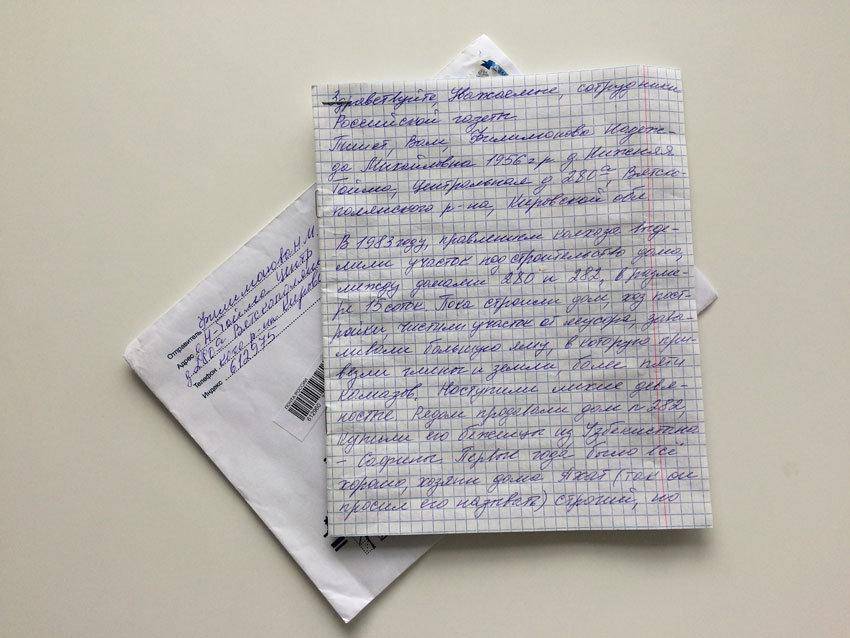 Здравствуйте, Уважаемые, сотрудники
Российской газеты
Пишет, Вам, Филимонова Надеж-
да Михайловна 1956 г.р. д. Нижняя
Тойма, Центральная д 280а, Вятско-
полянского р-на, Кировской обл.
В 1983 году, правлением колхоза выде-
лили участок под строительство дома,
между домами 280 и 282, в разме-
ре 15 соток. Пока строили дом, хозпост-
ройки, чистили участок от мусора, зава
ливали большую яму, в которую при-
везли глины и земли более пяти
камазов. Наступили лихие девя-
ностые. Рядом продавали дом № 282,
купили его беженцы из Узбекистана
- Сафины. Первые года было всё
хорошо, хозяин дома Ахат (так он
просил его называть) строгий, но
Отправитель Филимонова Н М
Адрес д. Н-Тойма Центр
д-280а Вятскополянс
Телефон кого р-на Киров
Индекс 612975
ПОЧТА РОССИИ
612960